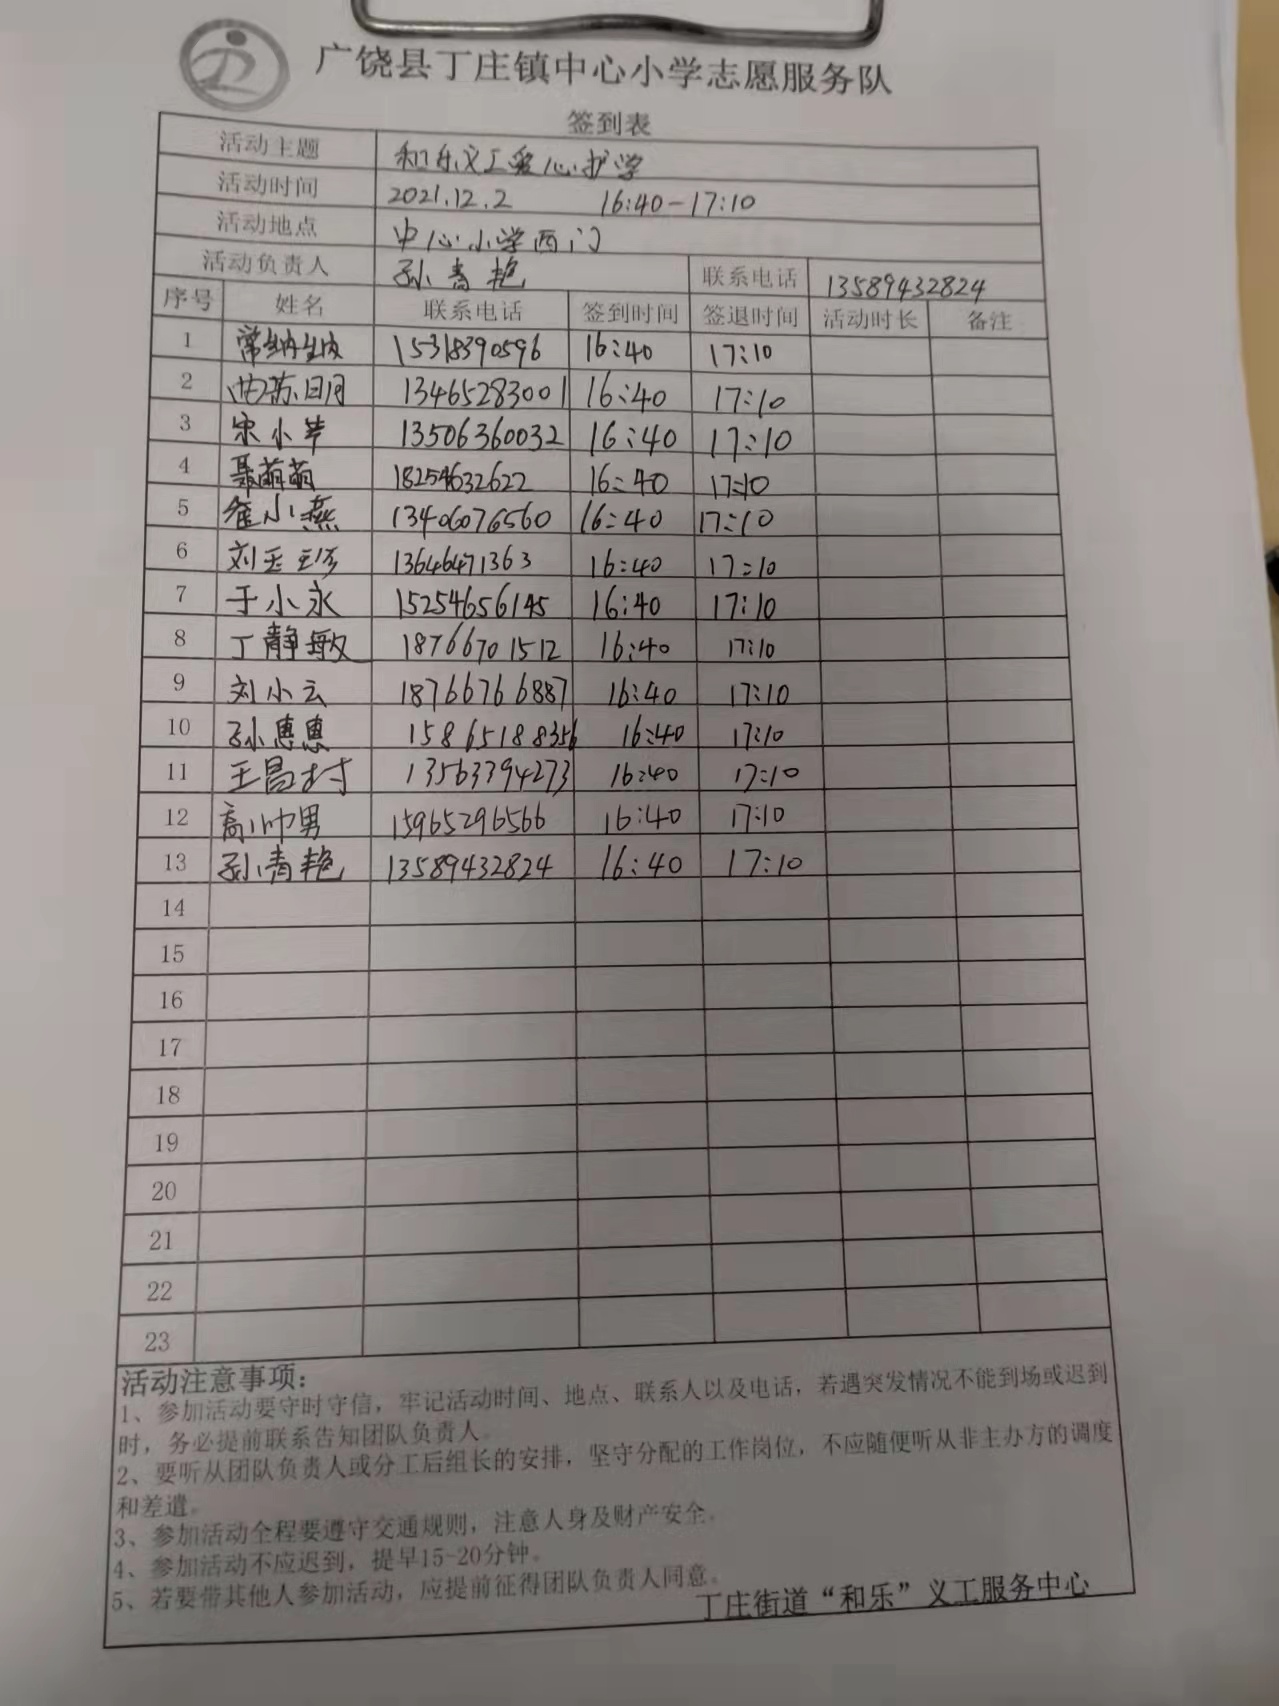 广饶县丁庄镇中心小学志愿服务队
签到表
活动主题 和乐义工爱心护学
活动时间 2021.12.2 16:40-17:10
活动地点 中心小学西门
活动负责人 孙青艳 联系电话 13589432824
序号 姓名 联系电话 签到时间 签退时间 活动时长 备注
1 常纳纳 15318390596 16:40 17:10
2 13465283001 16:40 17:10
3 宋小苹 13506360032 16:40 17:10
4 聂萌萌 18254632622 16:40 17:10
5 崔小燕 13406076560 16:40 17:10
6 刘玉珍 13646471363 16:40 17:10
7 于小永 15254656145 16:40 17:10
8 丁静敏 18766701512 16:40 17:10
9 刘小云 18766766887 16:40 17:10
10 孙惠惠 15865188356 16:40 17:10
11 王昌村 13563394273 16:40 17:10
12 高帅男 15965296566 16:40 17:10
13 孙青艳 13589432824 16:40 17:10
14
15
16
17
18
19
20
21
22
23
活动注意事项：
1、参加活动要守时守信，牢记活动时间、地点、联系人以及电话，若遇突发情况不能到场或迟到
时，务必提前联系告知团队负责人。
2、要听从团队负责人或分工后组长的安排，坚守分配的工作岗位，不应随便听从非主办方的调度
和差遣。
3、参加活动全程要遵守交通规则，注意人身及财产安全。
4、参加活动不应迟到，提早15-20分钟。
5、若要带其他人参加活动，应提前征得团队负责人同意。
丁庄街道“和乐”义工服务中心